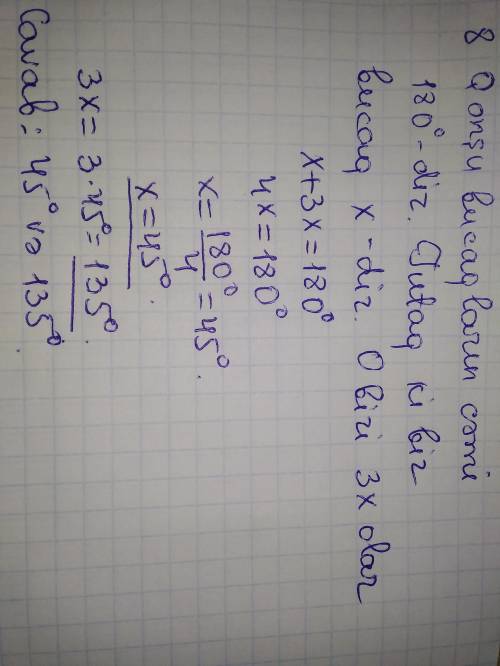 8 Qonşu bucaqların cəmi
180°-diz. Tutaq ki bir
bucaq x-diz. O biri 3x olar
x+3x=180°
4x=180°
x=180°/4=45°.
x=45°.
3x=3·45°=135°.
Cavab: 45° və 135°.